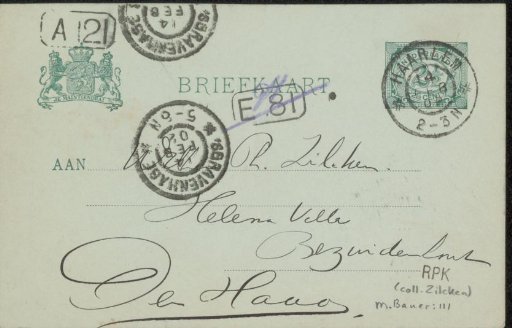 A 21
'SGRAVENHAGE
14
FEB
BRIEFKAART
HAARLEM
14
2-3N
E 81
'SGRAVENHAGE
FEB
02
5-6N
AAN
Ph. Zilcken.
Helena Villa
Bezuidenhout
Den Haag
RPK
(coll. Zilcken)
M. Bauer: 111